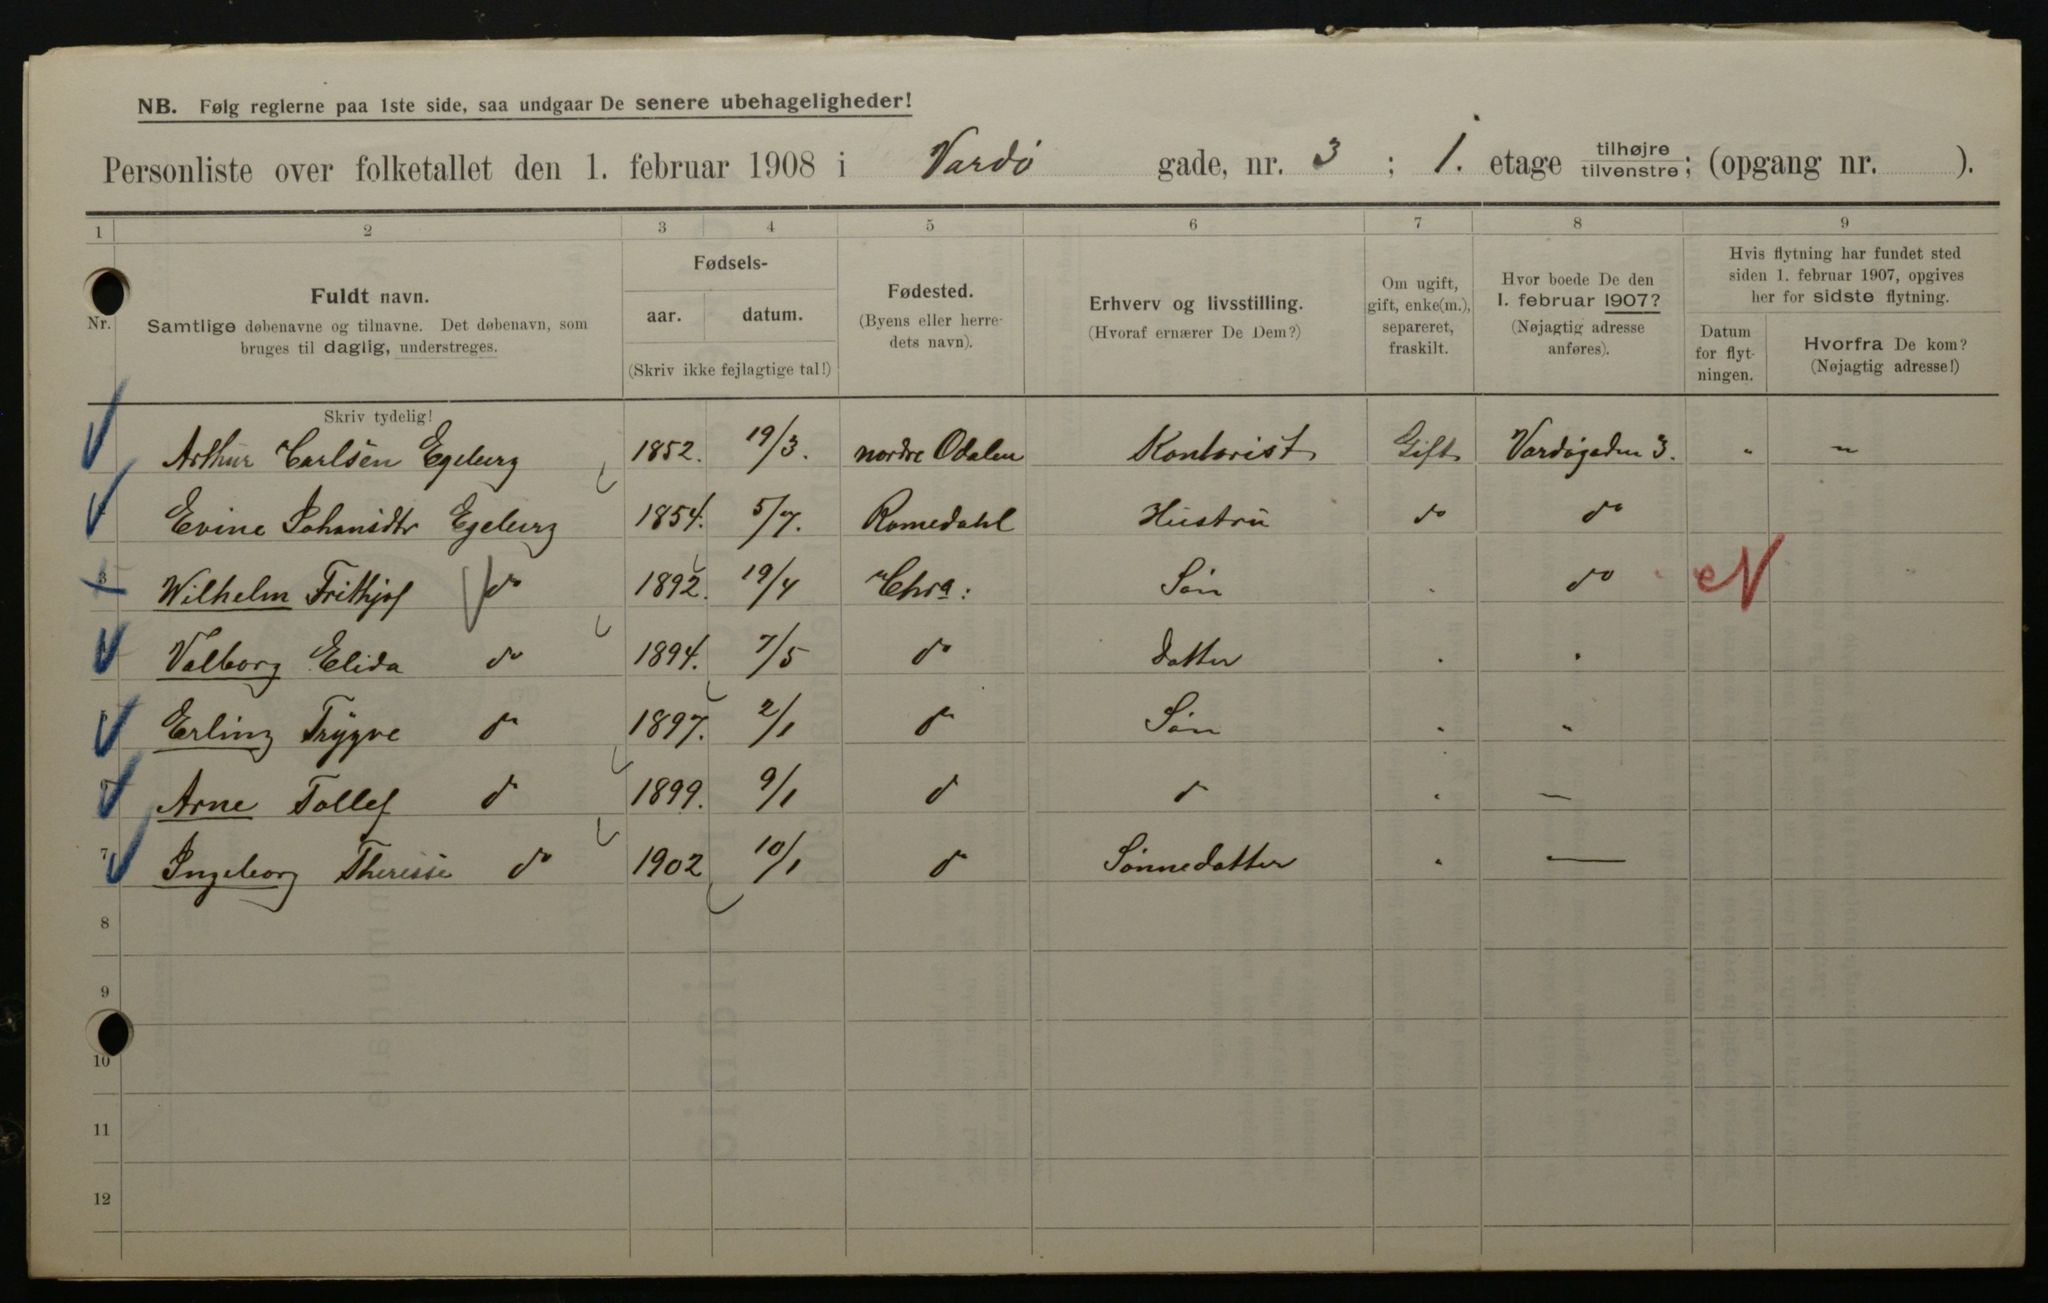 NB. Følg reglerne paa 1ste side, saa undgaar De senere ubehageligheder!
Personliste over folketallet den 1. februar 1908 i Vardø gade, nr. 3 ; 1. etage tilhøjre tilvenstre; (opgang nr. ).
1 2 3 4 5 6 7 8 9
Nr.
Fuldt navn.
Samtlige døbenavne og tilnavne. Det døbenavn, som
bruges til daglig, understreges.
Skriv tydelig!
Fødsels-
aar. datum.
(Skriv ikke fejlagtige tal!)
Fødested.
(Byens eller herre-
dets navn).
Erhverv og livsstilling.
(Hvoraf ernærer De Dem?)
Om ugift,
gift, enke(m.),
separeret,
fraskilt.
Hvor boede De den
1. februar 1907?
(Nøjagtig adresse
anføres).
Hvis flytning har fundet sted
siden 1. februar 1907, opgives
her for sidste flytning.
Datum
for flyt-
ningen.
Hvorfra De kom?
(Nøjagtig adresse!)
Arthur Carlsen Egeberg 1852. 19/3. nordre Odalen Kontorist Gift Vardøgaden 3. " "
Evine Johansdtr Egeberg 1854. 5/7. Romedahl Hustru do do
3 Wilhelm Frithjof do 1892. 19/4 Chra: Søn " do N
Valborg Elida do 1894. 7/5 do Datter " "
Erling Trygve do 1897. 2/1 do Søn " "
6 Arne Tollef do 1899. 9/1 do do " —
7 Ingeborg Theresie do 1902 10/1 do Sønnedatter " —
8
9
10
11
12